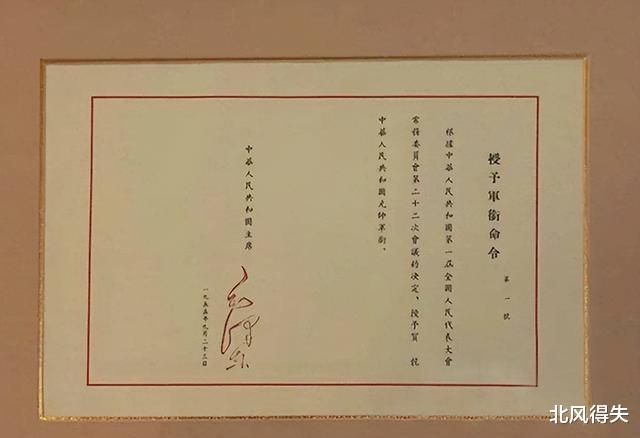 授予軍銜命令
第一號
根據中華人民共和國第一屆全國人民代表大會
常務委員會第二十二次會議的決定、授予賀 龍
中華人民共和國元帥軍銜、
中華人民共和國主席
毛澤東
一九五五年九月二十三日
北风得失